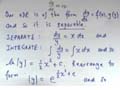 dy/dx = xy
Our ODE is of the form dy/dx = f(x)g(y)
and so it is separable.
SEPARATE: dy/y = x dx and
INTEGRATE: ∫ dy/y = ∫ x dx and so
ln|y| = ½x² + C. Rearrange to
form |y| = e^(½x² + C) and so